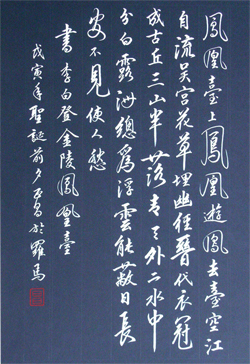 鳳凰臺上鳳凰遊鳳去臺空江
自流吳宮花草埋幽徑晉代衣冠
成古丘三山半落青天外二水中
分白露洲總為浮雲能蔽日長
安不見使人愁
書李白登金陵鳳凰臺
戊寅年聖誕前夕於羅馬